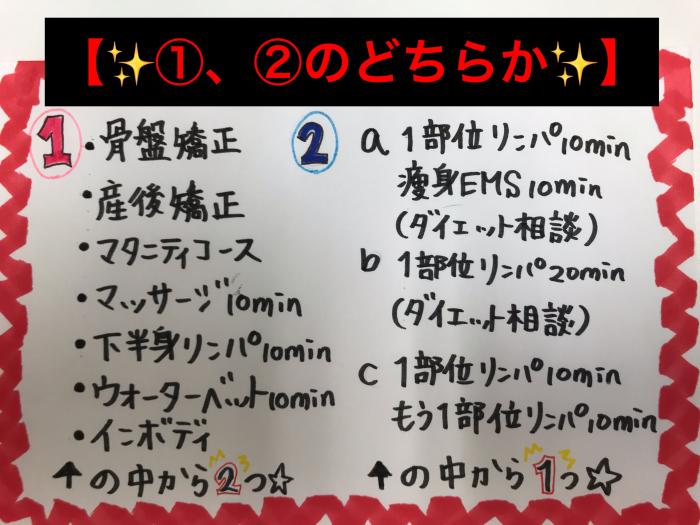 【✨①、②のどちらか✨】
1
・骨盤矯正
・産後矯正
・マタニティコース
・マッサージ10min
・下半身リンパ10min
・ウォーターベット10min
・インボディ
↑の中から2つ☆
2
a 1部位リンパ10min
痩身EMS10min
(ダイエット相談)
b 1部位リンパ20min
(ダイエット相談)
c 1部位リンパ10min
もう1部位リンパ10min
↑の中から1つ☆